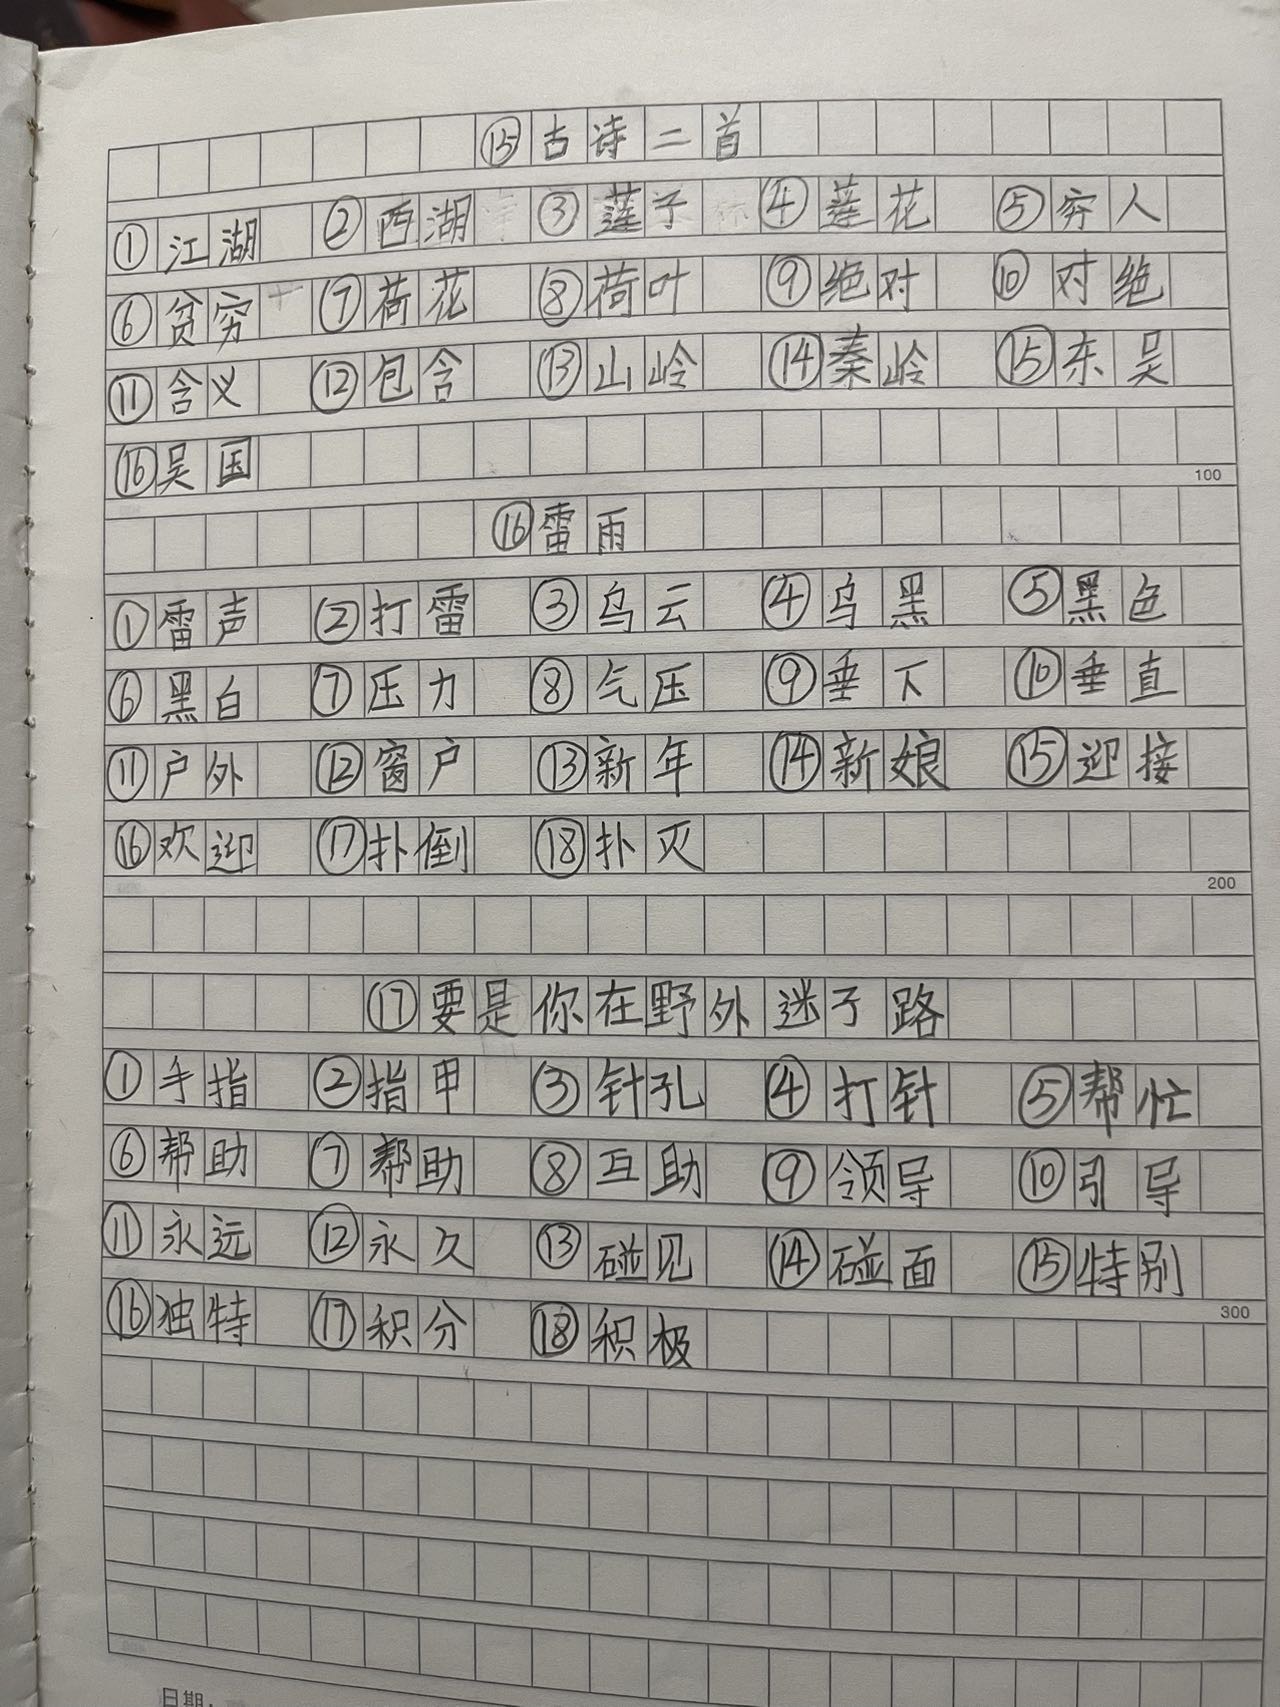 ⑮古诗二首
①江湖 ②西湖 ③莲子 ④莲花 ⑤穷人
⑥贫穷 ⑦荷花 ⑧荷叶 ⑨绝对 ⑩对绝
⑪含义 ⑫包含 ⑬山岭 ⑭秦岭 ⑮东吴
⑯吴国
100
⑯雷雨
①雷声 ②打雷 ③乌云 ④乌黑 ⑤黑色
⑥黑白 ⑦压力 ⑧气压 ⑨垂下 ⑩垂直
⑪户外 ⑫窗户 ⑬新年 ⑭新娘 ⑮迎接
⑯欢迎 ⑰扑倒 ⑱扑灭
200
⑰要是你在野外迷了路
①手指 ②指甲 ③针孔 ④打针 ⑤帮忙
⑥帮助 ⑦帮助 ⑧互助 ⑨领导 ⑩引导
⑪永远 ⑫永久 ⑬碰见 ⑭碰面 ⑮特别
⑯独特 ⑰积分 ⑱积极
300
日期: